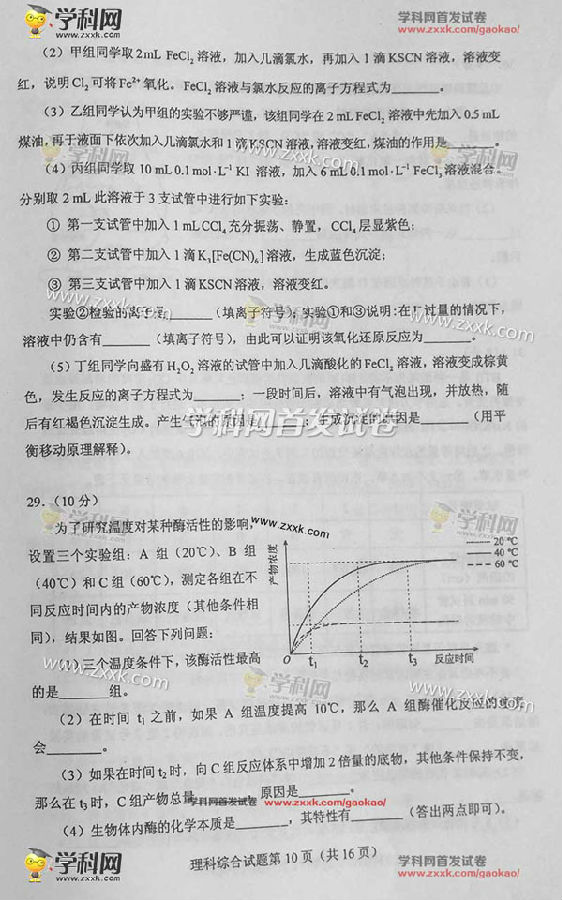 学科网 www.zxxk.com
学科网首发试卷 www.zxxk.com/gaokao/
（2）甲组同学取2mL FeCl₂ 溶液，加入几滴氯水，再加入1滴KSCN溶液，溶液变
红，说明Cl₂可将Fe²⁺氧化。FeCl₂溶液与氯水反应的离子方程式为______。
（3）乙组同学认为甲组的实验不够严谨，该组同学在2 mL FeCl₂ 溶液中先加入0.5 mL
煤油，再于液面下依次加入几滴氯水和1滴KSCN溶液，溶液变红，煤油的作用是______。
（4）丙组同学取 10 mL 0.1 mol·L⁻¹ KI 溶液，加入 6 mL 0.1 mol·L⁻¹ FeCl₃ 溶液混合。
分别取 2 mL 此溶液于3支试管中进行如下实验：
① 第一支试管中加入1 mL CCl₄ 充分振荡、静置，CCl₄ 层显紫色；
② 第二支试管中加入1滴 K₃[Fe(CN)₆] 溶液，生成蓝色沉淀；
③ 第三支试管中加入1滴KSCN溶液，溶液变红。
实验②检验的离子是______（填离子符号）；实验①和③说明：在I⁻过量的情况下，
溶液中仍含有______（填离子符号），由此可以证明该氧化还原反应为______。
（5）丁组同学向盛有H₂O₂ 溶液的试管中加入几滴酸化的FeCl₂ 溶液，溶液变成棕黄
色，发生反应的离子方程式为______；一段时间后，溶液中有气泡出现，并放热，随
后有红褐色沉淀生成。产生气泡的原因是______；生成沉淀的原因是______（用平
衡移动原理解释）。
学科网首发试卷
29.（10 分）
为了研究温度对某种酶活性的影响，
设置三个实验组：A 组（20℃）、B 组
（40℃）和C组（60℃），测定各组在不
同反应时间内的产物浓度（其他条件相
同），结果如图。回答下列问题：
产物浓度
20 ℃
40 ℃
60 ℃
O t₁ t₂ t₃ 反应时间
（1）三个温度条件下，该酶活性最高
的是______组。
（2）在时间 t₁ 之前，如果 A 组温度提高 10℃，那么 A 组酶催化反应的速度
会______。
（3）如果在时间t₂时，向C组反应体系中增加2倍量的底物，其他条件保持不变，
那么在 t₃时，C组产物总量______，原因是______。
学科网首发试卷 www.zxxk.com/gaokao/
（4）生物体内酶的化学本质是______，其特性有______（答出两点即可）。
理科综合试题第 10 页（共 16 页）
学科网 www.zxxk.com
学科网首发试卷 www.zxxk.com/gaokao/